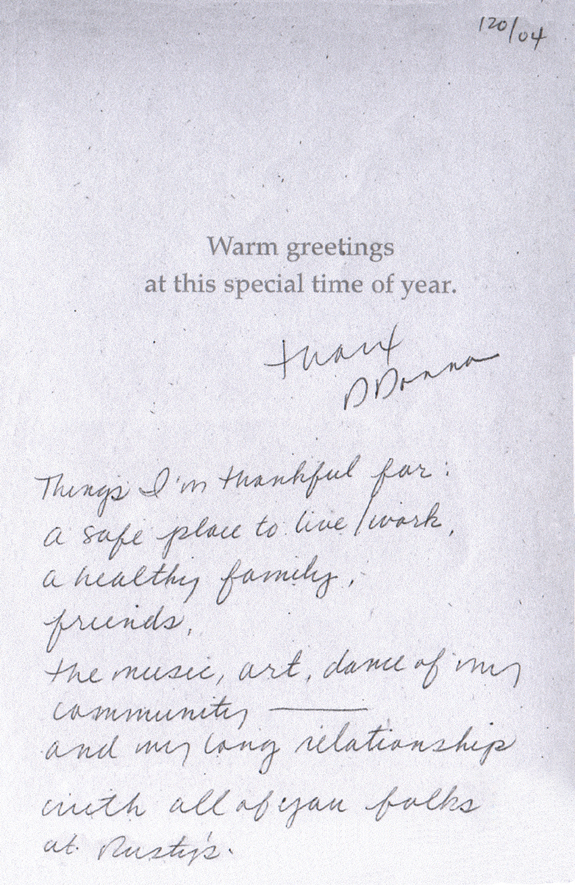 120/04
Warm greetings
at this special time of year.
Donna
Things I'm thankful for:
a safe place to live/work,
a healthy family,
friends,
the music, art, dance of my
community ———
and my long relationship
with all of you folks
at Rusty's.